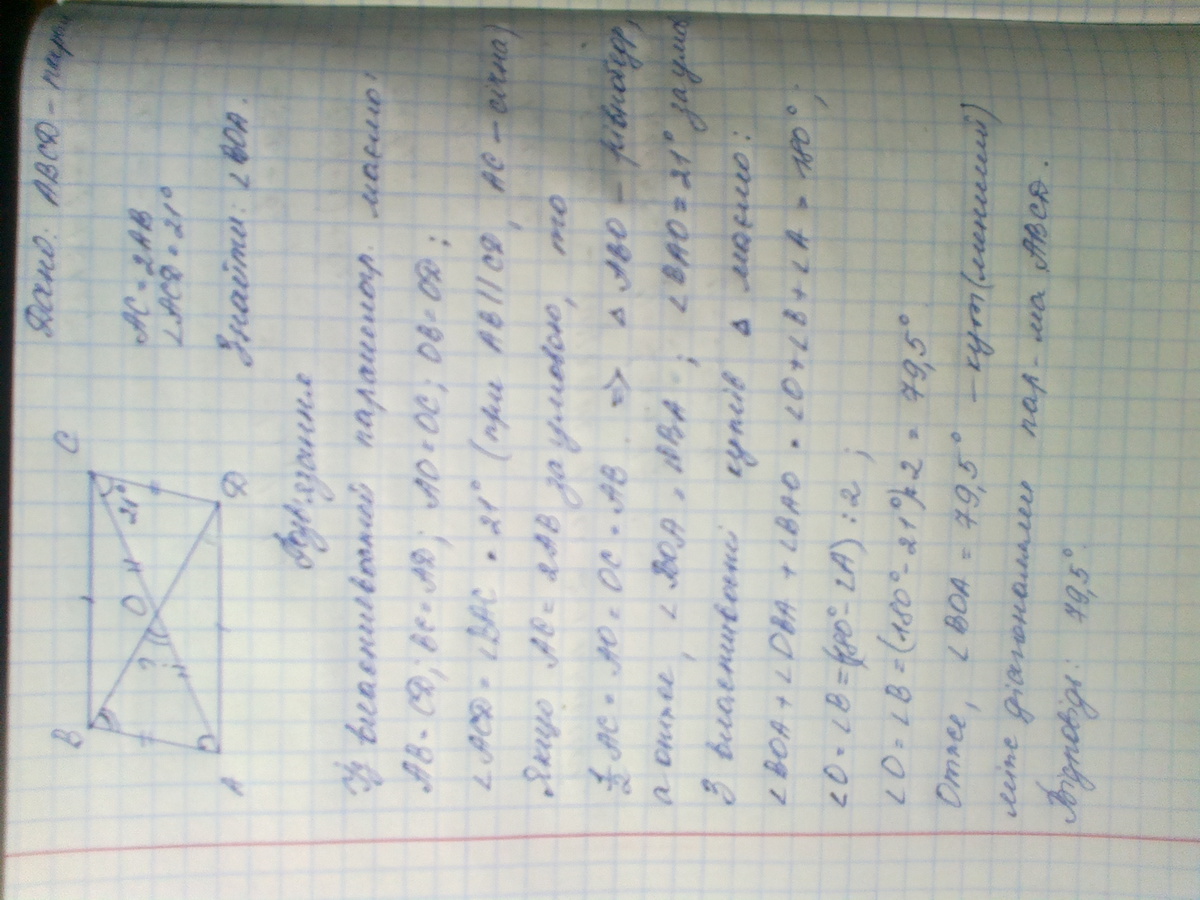 Дано: ABCD – пара
AC = 2AB
∠ACD = 21°
Знайти: ∠BOA.
B
C
O
?
21°
A
D
Розв'язання
Із властивостей паралелогр. маємо:
AB = CD; BC = AD; AO = OC; OB = OD;
∠ACD = ∠BAC = 21° (при AB || CD, AC – січна)
Якщо AC = 2AB за умовою, то
1/2 AC = AO = OC = AB => Δ ABO – рівнобедр,
а отже, ∠BOA = ∠ABO; ∠BAO = 21° за умов
З властивості кутів Δ маємо:
∠BOA + ∠OBA + ∠BAO = ∠O + ∠B + ∠A = 180°;
∠O = ∠B = (180° - ∠A) : 2;
∠O = ∠B = (180° - 21°) : 2 = 79,5°
Отже, ∠BOA = 79,5° – кут (менший)
між діагоналями пар-ма ABCD.
Відповідь: 79,5°.